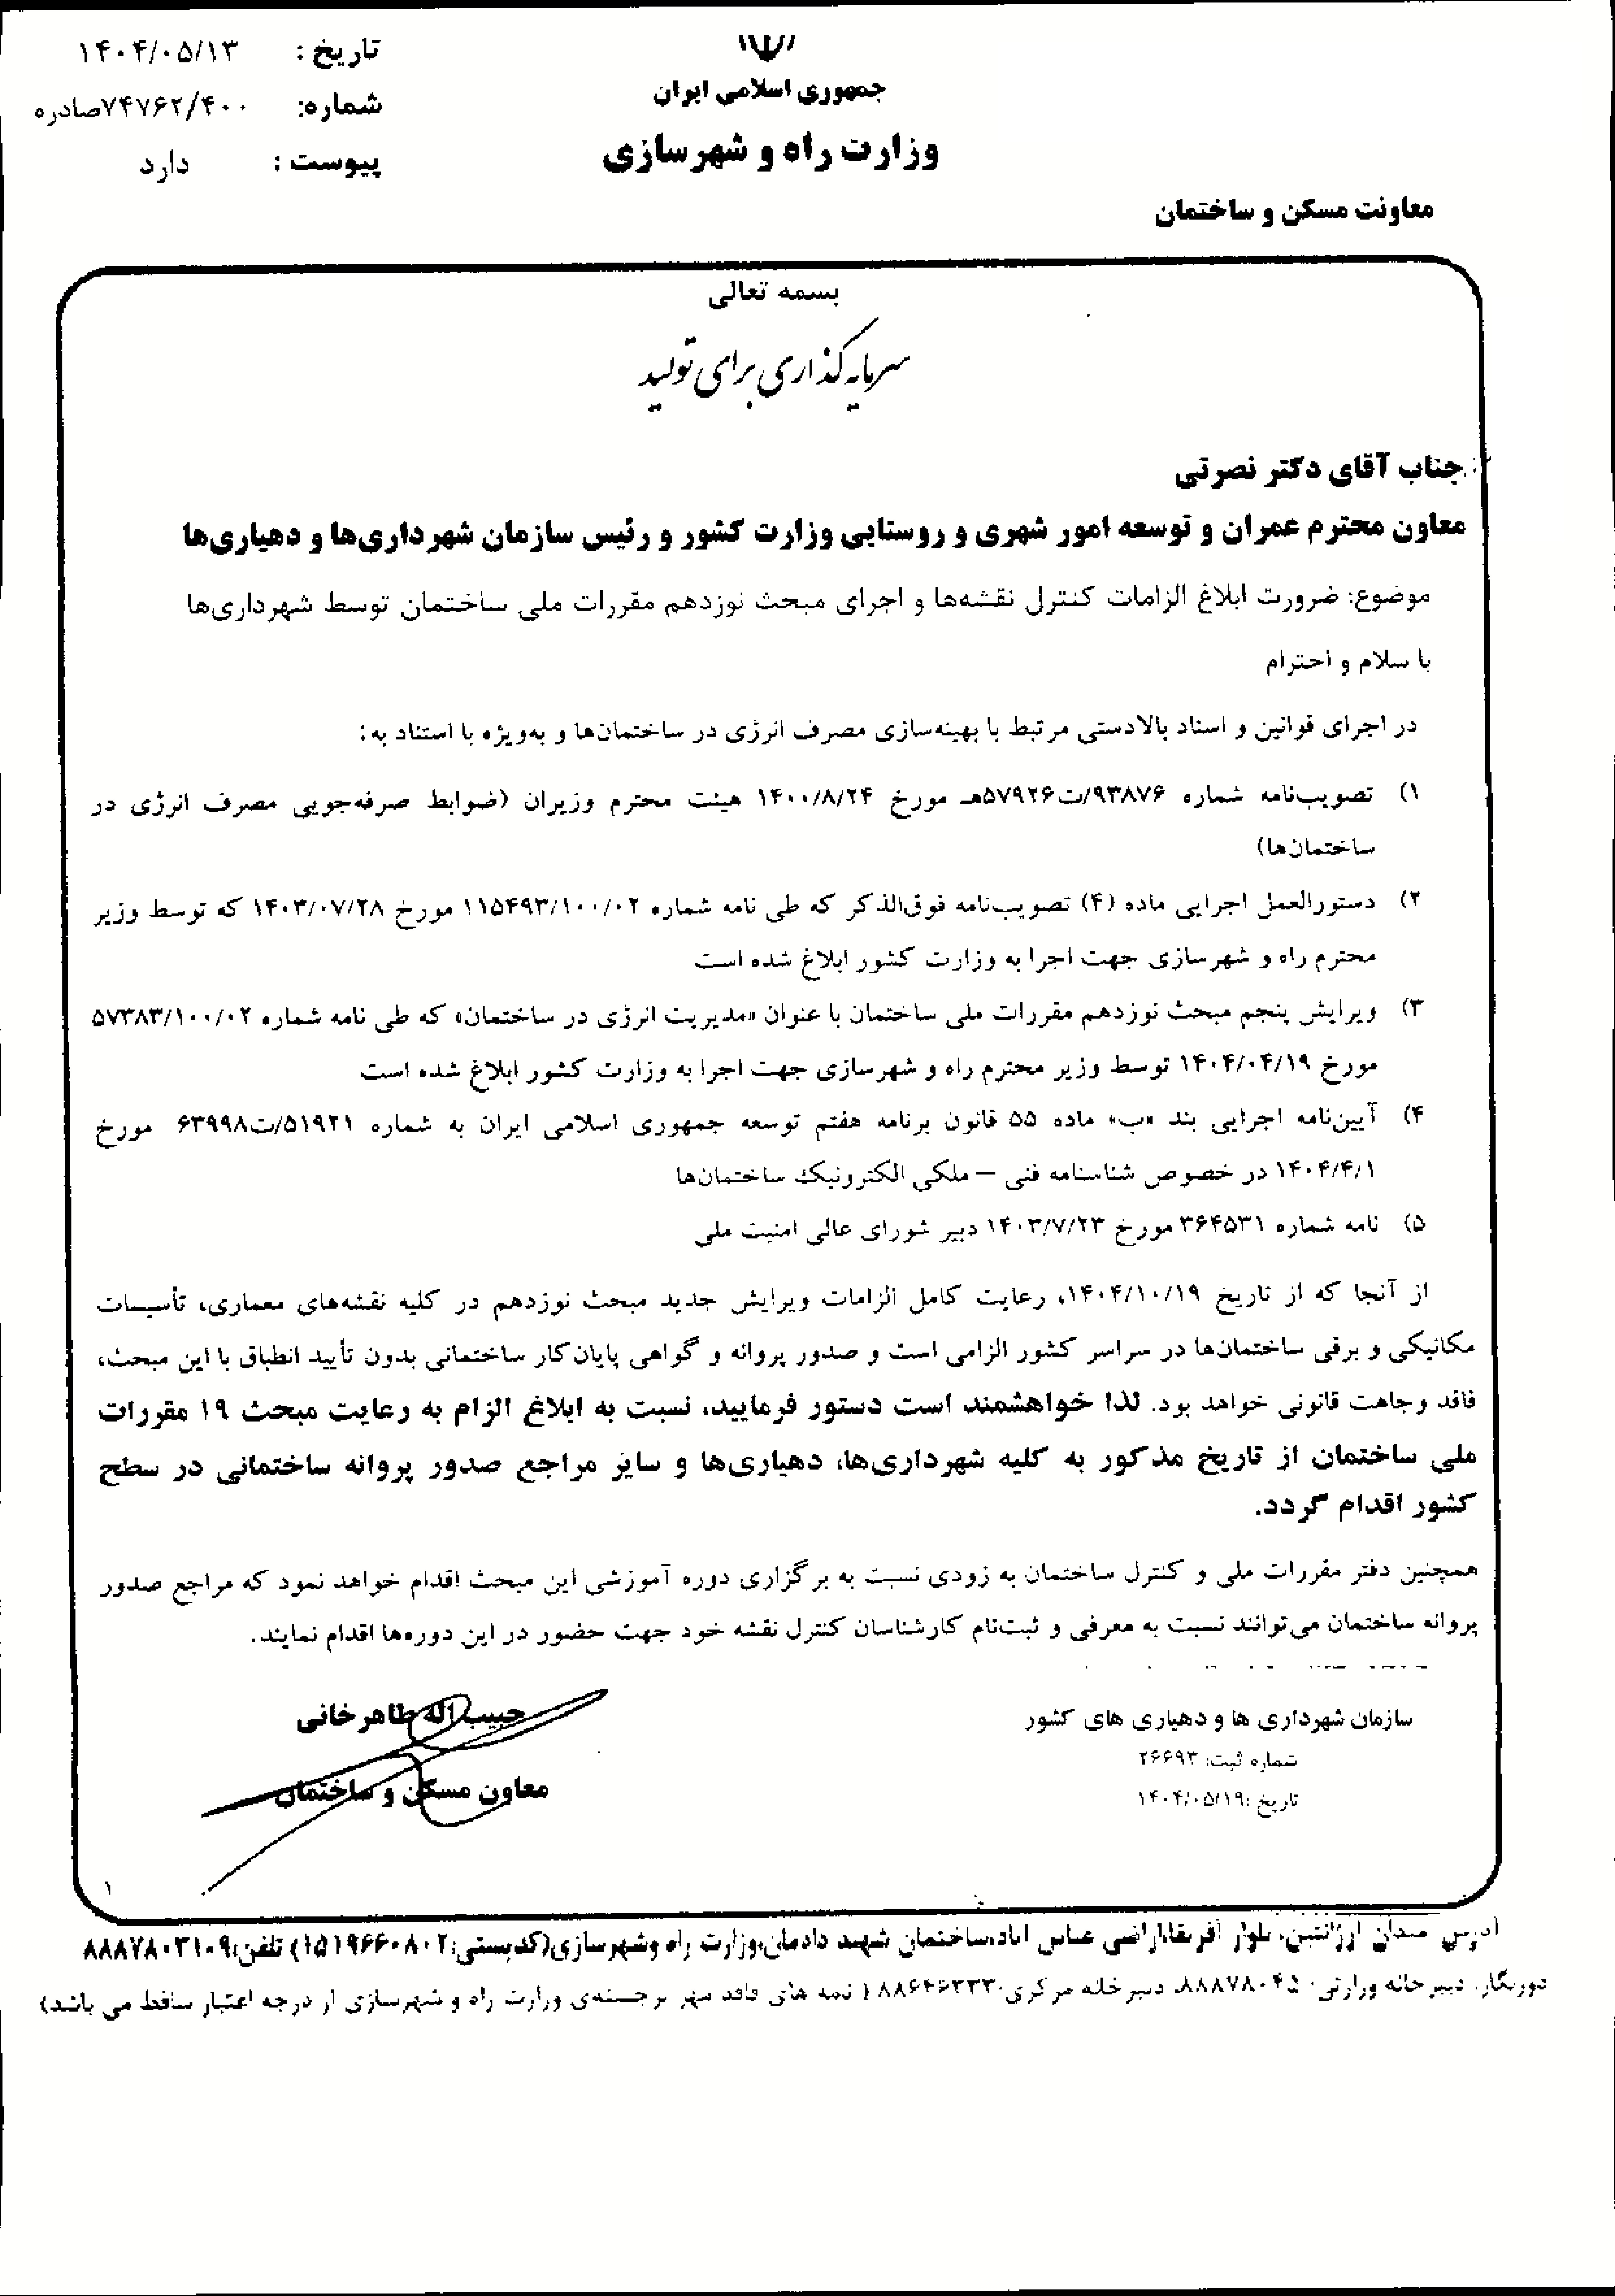 جمهوری اسلامی ایران
وزارت راه و شهرسازی
معاونت مسکن و ساختمان
تاریخ : ۱۴۰۴/۰۵/۱۳
شماره: ۷۴۷۶۲/۴۰۰صادره
پیوست : دارد
بسمه تعالی
سرمایه‌گذاری برای تولید
جناب آقای دکتر نصرتی
معاون محترم عمران و توسعه امور شهری و روستایی وزارت کشور و رئیس سازمان شهرداری‌ها و دهیاری‌ها
موضوع: ضرورت ابلاغ الزامات کنترل نقشه‌ها و اجرای مبحث نوزدهم مقررات ملی ساختمان توسط شهرداری‌ها
با سلام و احترام
در اجرای قوانین و اسناد بالادستی مرتبط با بهینه‌سازی مصرف انرژی در ساختمان‌ها و به‌ویژه با استناد به:
۱) تصویب‌نامه شماره ۹۳۸۷۶/ت۵۷۹۲۶هـ مورخ ۱۴۰۰/۸/۲۴ هیئت محترم وزیران (ضوابط صرفه‌جویی مصرف انرژی در
ساختمان‌ها)
۲) دستورالعمل اجرایی ماده (۴) تصویب‌نامه فوق‌الذکر که طی نامه شماره ۱۱۵۴۹۳/۱۰۰/۰۲ مورخ ۱۴۰۳/۰۷/۲۸ که توسط وزیر
محترم راه و شهرسازی جهت اجرا به وزارت کشور ابلاغ شده است
۳) ویرایش پنجم مبحث نوزدهم مقررات ملی ساختمان با عنوان «مدیریت انرژی در ساختمان» که طی نامه شماره ۵۷۳۸۳/۱۰۰/۰۲
مورخ ۱۴۰۴/۰۴/۱۹ توسط وزیر محترم راه و شهرسازی جهت اجرا به وزارت کشور ابلاغ شده است
۴) آیین‌نامه اجرایی بند «ب» ماده ۵۵ قانون برنامه هفتم توسعه جمهوری اسلامی ایران به شماره ۵۱۹۲۱/ت۶۳۹۹۸ مورخ
۱۴۰۴/۴/۱ در خصوص شناسنامه فنی – ملکی الکترونیک ساختمان‌ها
۵) نامه شماره ۳۶۴۵۳۱ مورخ ۱۴۰۳/۷/۲۳ دبیر شورای عالی امنیت ملی
از آنجا که از تاریخ ۱۴۰۴/۱۰/۱۹، رعایت کامل الزامات ویرایش جدید مبحث نوزدهم در کلیه نقشه‌های معماری، تأسیسات
مکانیکی و برقی ساختمان‌ها در سراسر کشور الزامی است و صدور پروانه و گواهی پایان‌کار ساختمانی بدون تأیید انطباق با این مبحث،
فاقد وجاهت قانونی خواهد بود. لذا خواهشمند است دستور فرمایید، نسبت به ابلاغ الزام به رعایت مبحث ۱۹ مقررات
ملی ساختمان از تاریخ مذکور به کلیه شهرداری‌ها، دهیاری‌ها و سایر مراجع صدور پروانه ساختمانی در سطح
کشور اقدام گردد.
همچنین دفتر مقررات ملی و کنترل ساختمان به زودی نسبت به برگزاری دوره آموزشی این مبحث اقدام خواهد نمود که مراجع صدور
پروانه ساختمان می‌توانند نسبت به معرفی و ثبت‌نام کارشناسان کنترل نقشه خود جهت حضور در این دوره‌ها اقدام نمایند.
حبیب اله طاهرخانی
معاون مسکن و ساختمان
سازمان شهرداری ها و دهیاری های کشور
شماره ثبت: ۲۶۶۹۳
تاریخ :۱۴۰۴/۰۵/۱۹
۱
آدرس میدان ارژانتین، بلوار آفریقا،اراضی عباس آباد،ساختمان شهید دادمان،وزارت راه وشهرسازی(کدپستی:۱۵۱۹۶۶۰۸۰۲) تلفن:۸۸۸۷۸۰۳۱-۹
دورنگار، دبیرخانه وزارتی: ۸۸۸۷۸۰۴۵، دبیرخانه مرکزی:۸۸۶۴۶۳۳۳ ( نامه های فاقد مهر برجسته‌ی وزارت راه و شهرسازی از درجه اعتبار ساقط می باشد)